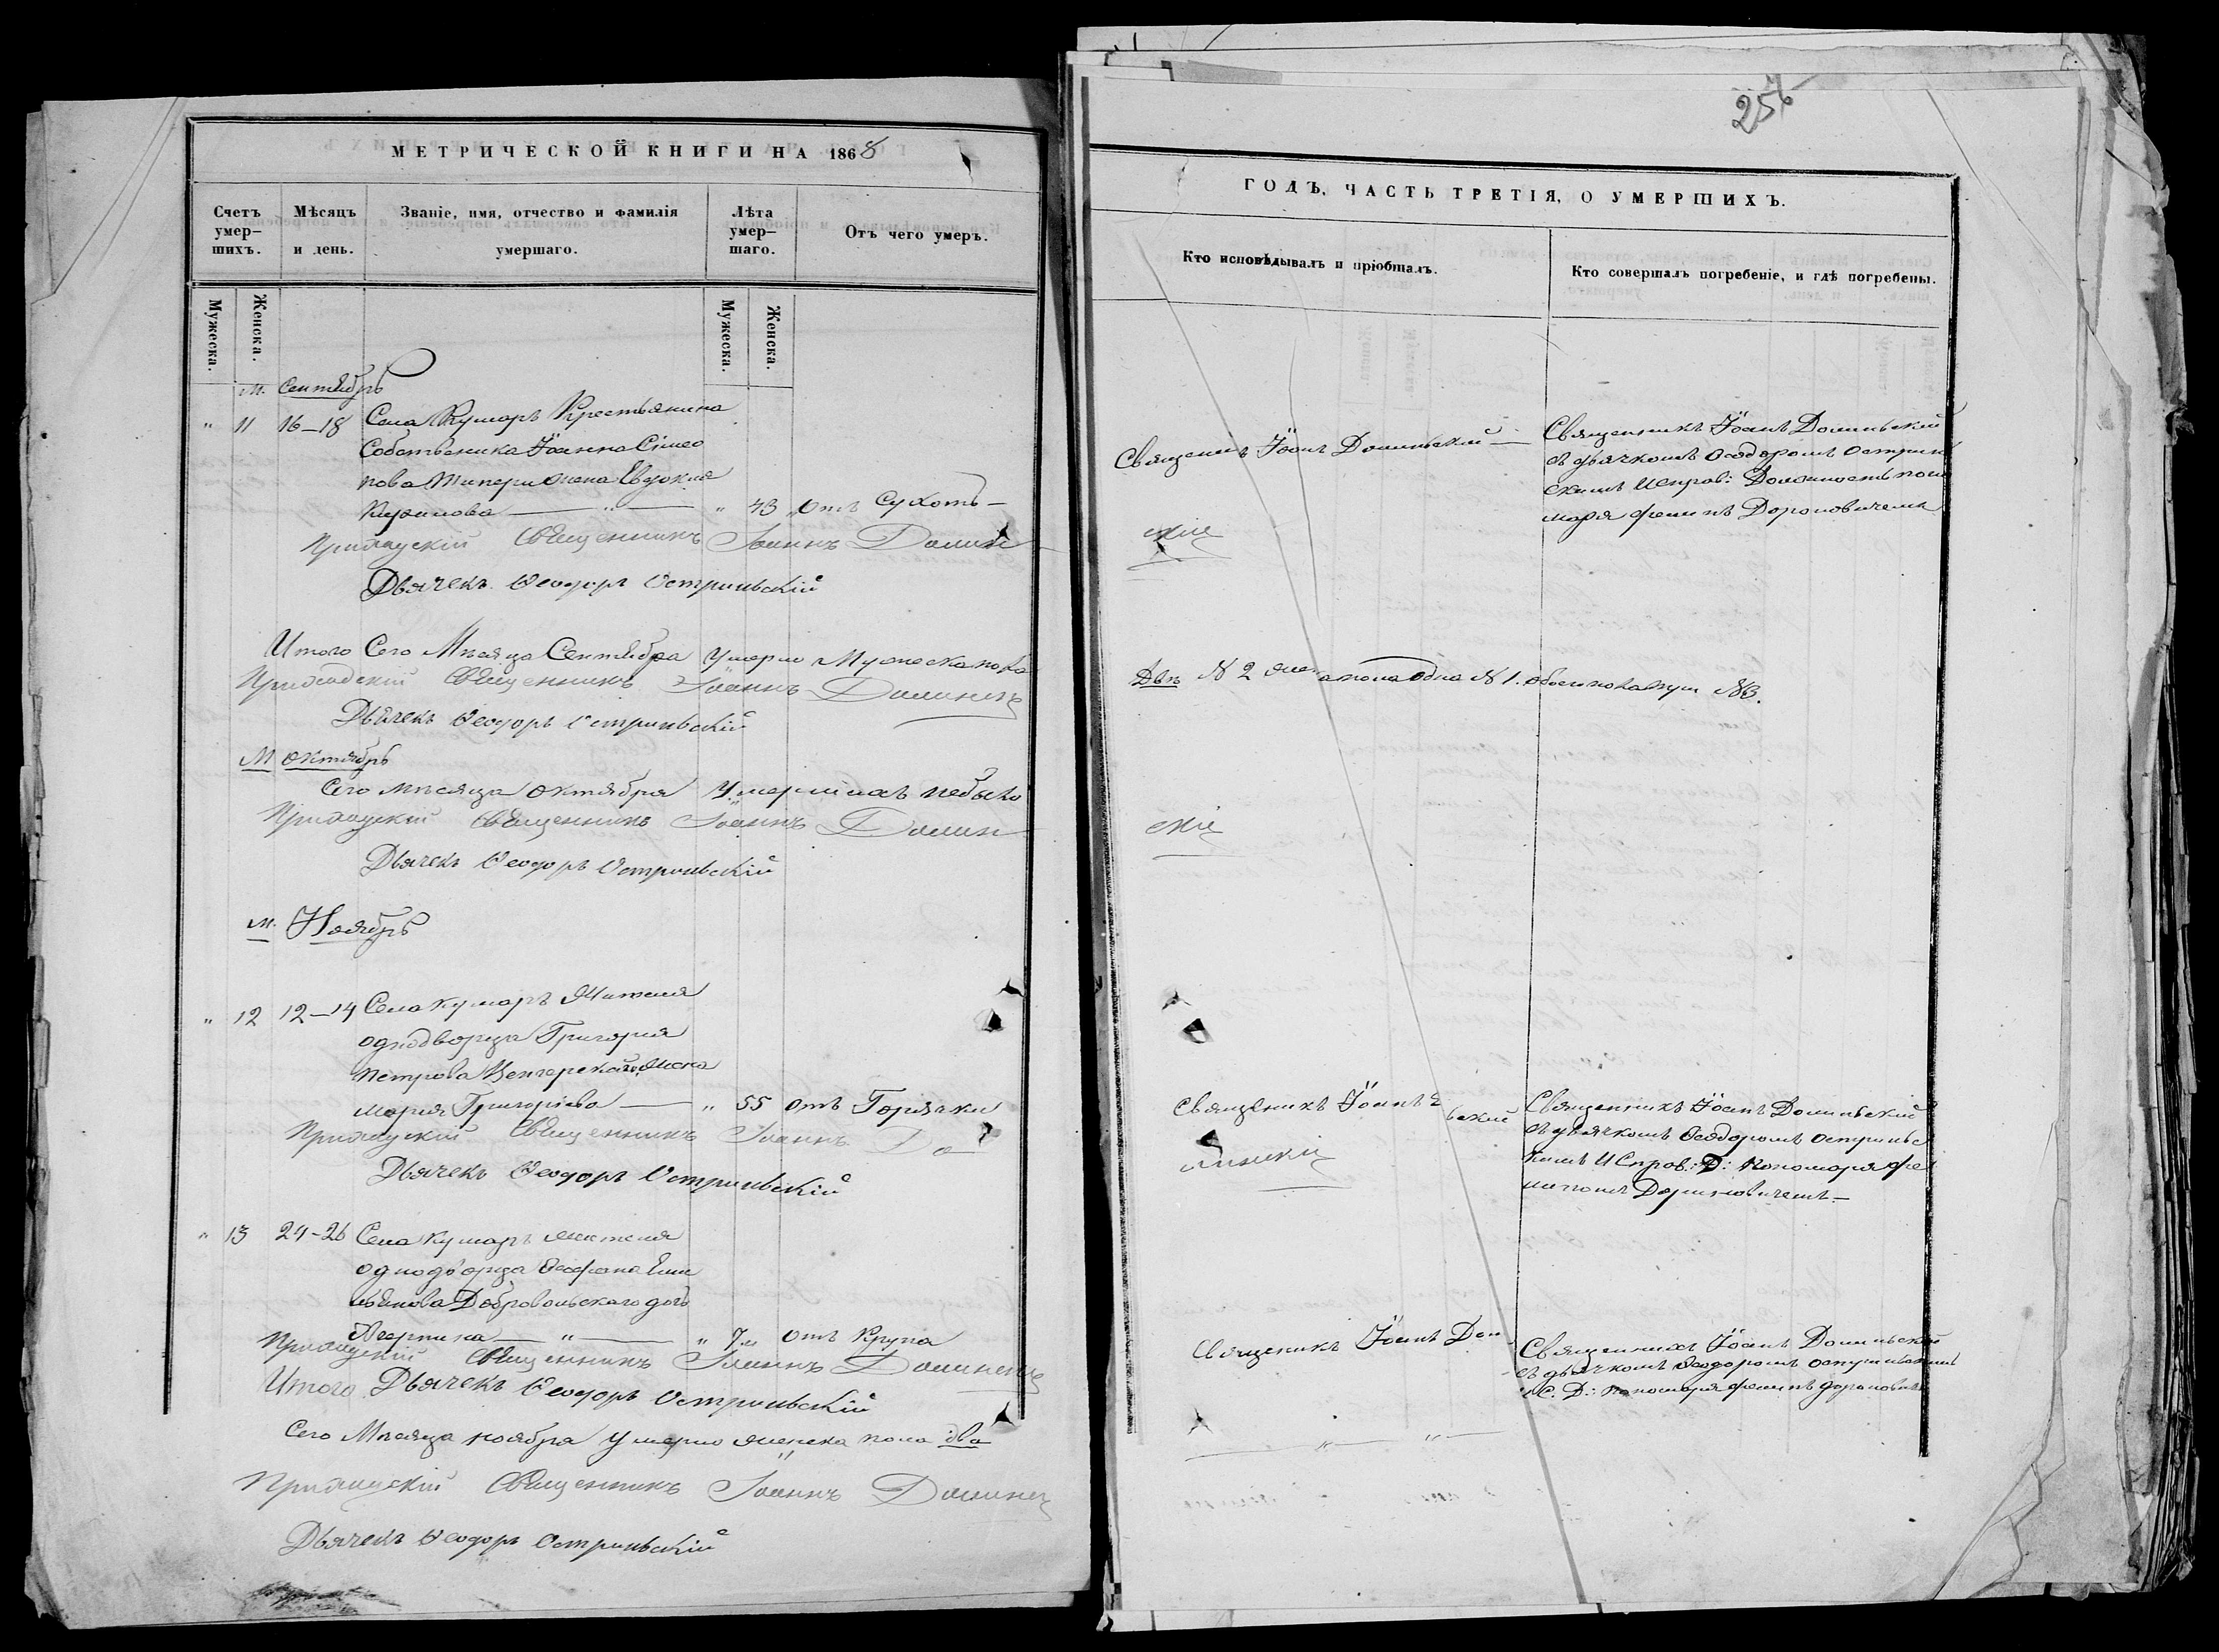 МЕТРИЧЕСКОЙ КНИГИ НА 1868
Счетъ умер-шихъ.
Мѣсяцъ и день.
Званіе, имя, отчество и фамилія умершаго.
Лѣта умер-шаго.
Отъ чего умеръ.
Мужеска.
Женска.
Мужеска.
Женска.
м. Сентябрь
" 11 16–18 Села Кушаръ Крестьянина
Собственника Іоанна Сімео
нова жена Евдокия
" 43 отъ Сухоть –
Приходскій Священникъ Іоаннъ Долин
Дьячекъ Ѳеодоръ Остриньскій
Итого Сего Мѣсяца Сентября умерло Мужеска пола
Приходскій Священникъ Іоаннъ Долинскі
Дьячекъ Ѳеодоръ Остриньскій
М октябрь
Сего мѣсяца октября умершихъ небыло
Приходскій Священникъ Іоаннъ Долин
Дьячекъ Ѳеодоръ Остриньскій
м. Ноябрь
" 12 12–14 Села Кушаръ Жителя
однодворца Григорія
Петрова жена
Марія Григоріева — " 55 отъ Горячки
Приходскій Священникъ Іоаннъ До
Дьячекъ Ѳеодоръ Остриньскій
" 13 24–26 Села Кушаръ жителя
однодворца Ѳеофана Еми
льянова Добровольскаго дочь
— " — " 7м отъ Крупа
Приходскій Священникъ Іоаннъ Долинскі
Итого Дьячекъ Ѳеодоръ Остриньскій
Сего Мѣсяца ноября умерло женска пола два
Приходскій Священникъ Іоаннъ Долинскі
Дьячекъ Ѳеодоръ Остриньскій
ГОДЪ, ЧАСТЬ ТРЕТІЯ, О УМЕРШИХЪ.
Кто исповѣдывалъ и пріобщалъ.
Кто совершалъ погребеніе, и гдѣ погребены.
Священикъ Іоанъ Долиньский —
скій
Священникъ Іоанъ Долиньский
съ дьячкомъ Ѳеодоромъ Острин
скимъ Исправ: Должность поно
маря
Два № 2 жен пола одна № 1. обоего пола три №3.
скій
Священикъ Іоанъ
линскій
Священникъ Іоанъ Долиньский
съ дьячкомъ Ѳеодоромъ Остриньс
кимъ Исправ: Д: Пономаря
Священикъ Іоанъ Дол
Священникъ Іоанъ Долиньский
съ дьячкомъ Ѳеодоромъ Остриньскимъ
И С. Д: Пономаря